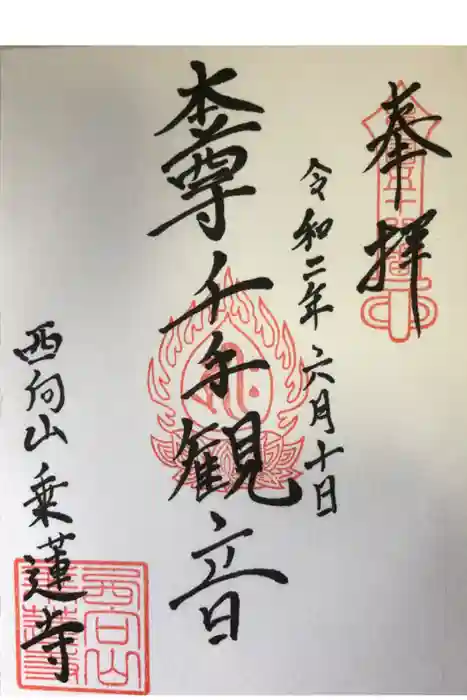 奉拝
令和二年六月十日
本尊千手観音
西向山乗蓮寺
西向山